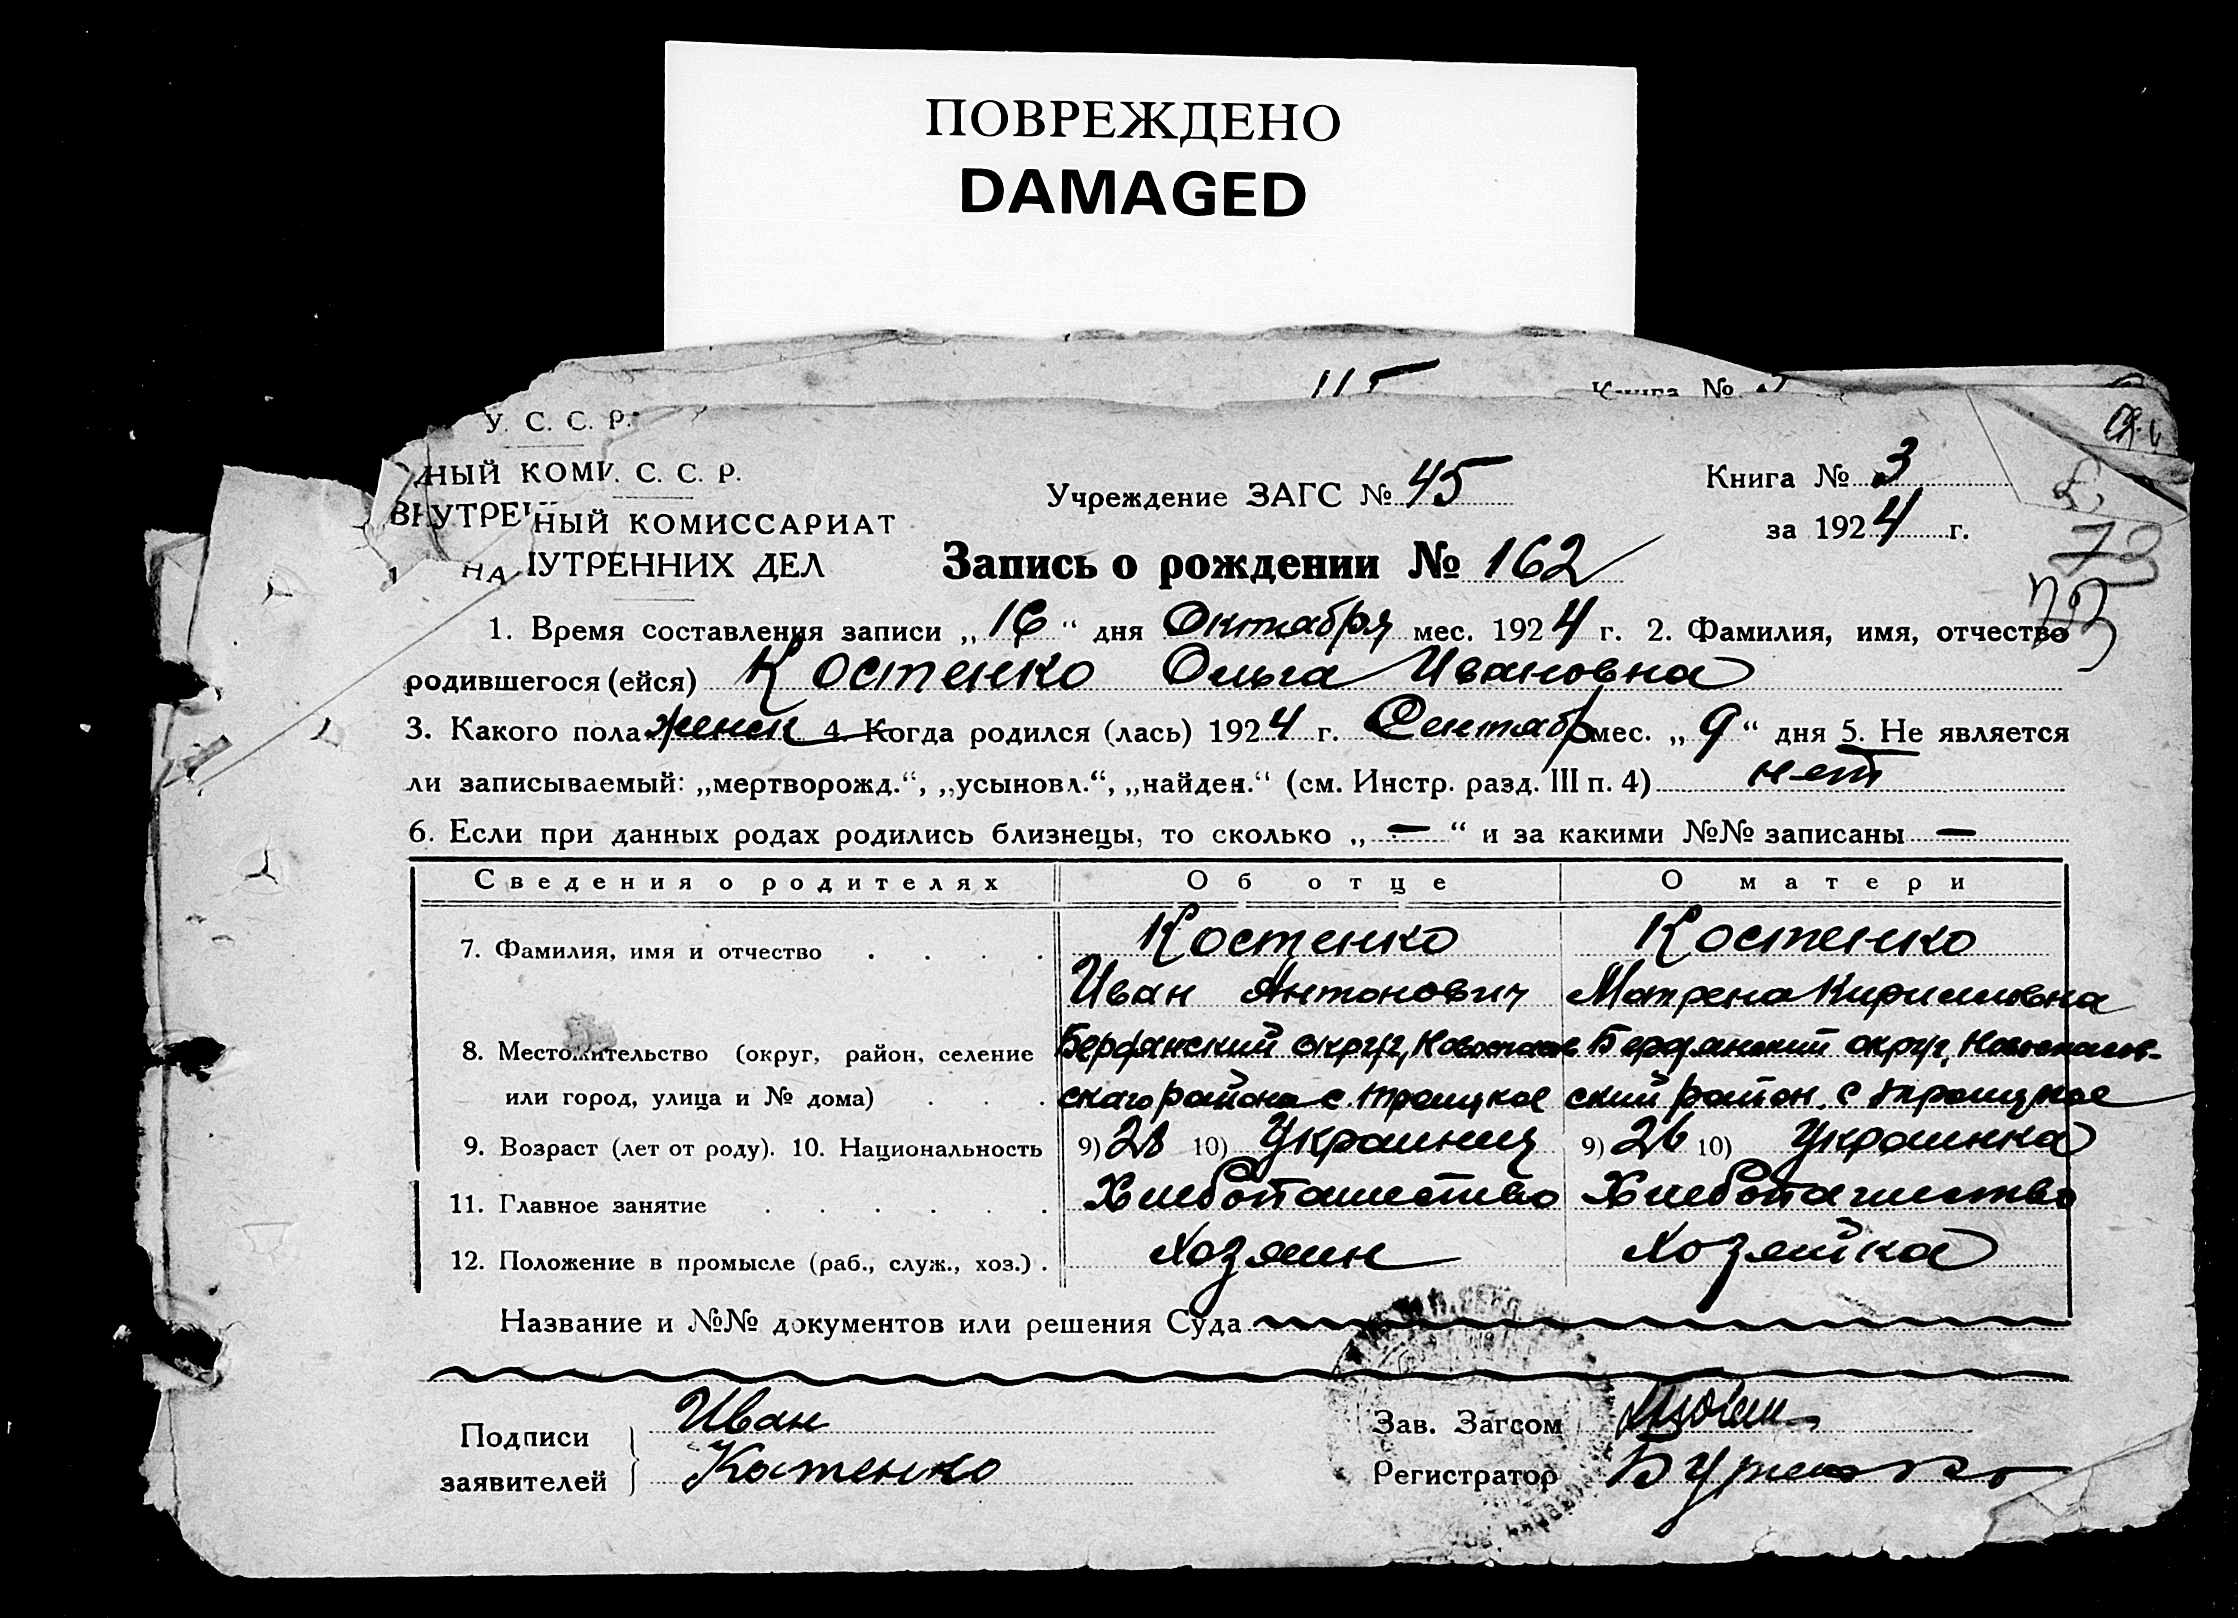 ПОВРЕЖДЕНО
DAMAGED
115
Книга №
У. С. С. Р.
НЫЙ КОМИ. С. С. Р.
Учреждение ЗАГС № 45
Книга № 3
ВНУТРЕН
НЫЙ КОМИССАРИАТ
за 1924 г.
73
НА
УТРЕННИХ ДЕЛ
Запись о рождении № 162
1. Время составления записи „16“ дня Октября мес. 1924 г. 2. Фамилия, имя, отчество
родившегося (ейся) Костенко Ольга Ивановна
3. Какого пола женск 4. Когда родился (лась) 1924 г. Сентябр мес. „9“ дня 5. Не является
ли записываемый: „мертворожд.“, „усыновл.“, „найден.“ (см. Инстр. разд. III п. 4) нет
6. Если при данных родах родились близнецы, то сколько „—“ и за какими №№ записаны —
Сведения о родителях Об отце О матери
7. Фамилия, имя и отчество . . . . Костенко Костенко
Иван Антонович Матрена Кирилловна
8. Местожительство (округ, район, селение Бердянский округ, Новоспасов Бердянский округ, Новоспасов-
или город, улица и № дома) . . . скаго района с. Троицкое ский район. с Троицкое
9. Возраст (лет от роду). 10. Национальность 9) 28 10) Украинец 9) 26 10) Украинка
11. Главное занятие . . . . . . Хлебопашество Хлебопашество
12. Положение в промысле (раб., служ., хоз.) . Хозяин Хозяйка
Название и №№ документов или решения Суда
Подписи
заявителей
Иван
Костенко
Зав. Загсом
Регистратор